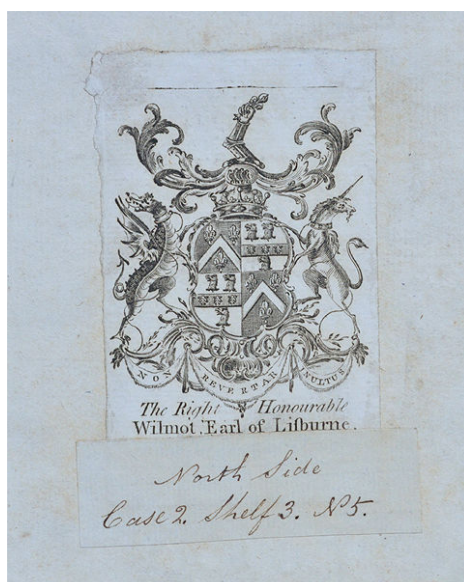 NON REVERTAR INULTUS
The Right Honourable
Wilmot Earl of Liſburne.
North Side
Case 2. Shelf 3. No 5.